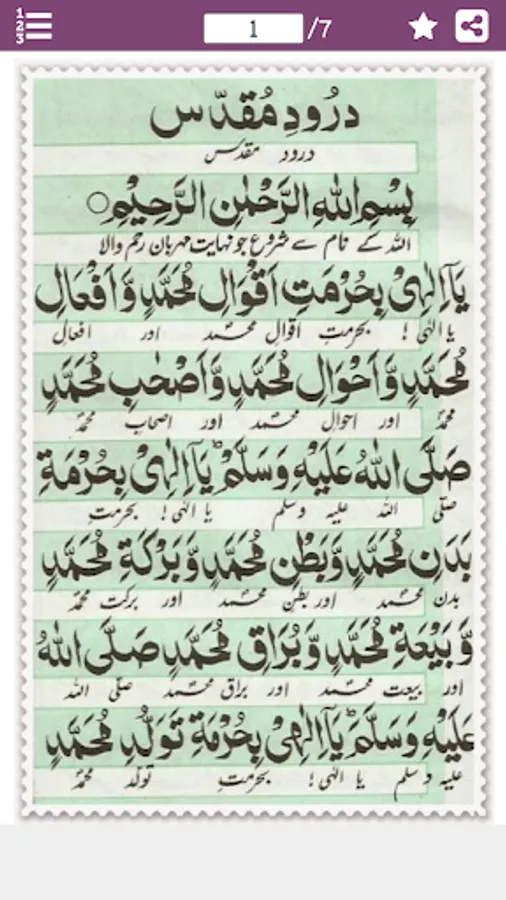 1 /7
درُودِ مُقدّس
درود مقدس
بِسْمِ اللّٰهِ الرَّحْمٰنِ الرَّحِيْمِ○
اللہ کے نام سے شروع جو نہایت مہربان رحم والا
يَآ اِلٰهِىْ بِحُرْمَتِ اَقْوَالِ مُحَمَّدٍ وَّ اَفْعَالِ
یا الٰہی! بحرمتِ اقوال محمد اور افعال
مُحَمَّدٍ وَّ اَحْوَالِ مُحَمَّدٍ وَّ اَصْحٰبِ مُحَمَّدٍ
محمدؐ اور احوال محمد اور اصحاب محمدؐ
صَلَّى اللّٰهُ عَلَيْهِ وَسَلَّمَ ؕ يَآ اِلٰهِىْ بِحُرْمَةِ
صلّی اللہ علیہ وسلم یا الٰہی! بحرمتِ
بَدَنِ مُحَمَّدٍ وَّ بَطْنِ مُحَمَّدٍ وَّ بَرْكَةِ مُحَمَّدٍ
بدن محمد اور بطن محمد اور برکت محمدؐ
وَّ بَيْعَةِ مُحَمَّدٍ وَّ بُرَاقِ مُحَمَّدٍ صَلَّى اللّٰهُ
اور بیعت محمد اور براق محمد صلّی اللہ
عَلَيْهِ وَسَلَّمَ ؕ يَآ اِلٰهِىْ بِحُرْمَةِ تَوَلُّدِ مُحَمَّدٍ
علیہ وسلم یا الٰہی! بحرمتِ تولد محمدؐ